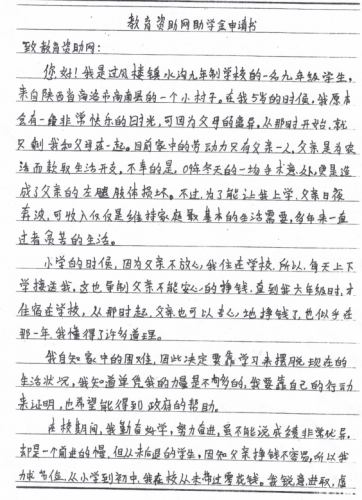 教育资助网助学金申请书
致教育资助网:
你好!我是过风楼镇水沟九年制学校的一名九年级学生,
来自陕西省商洛市商南县的一个小村子。在我5岁的时候,我原本
会有一段非常快乐的时光,可因为父母的离异,从那时开始,就
只剩我和父亲在一起。目前家中的劳动力只有父亲一人,父亲是为农
活而获取生活开支。不幸的是,09年冬天的一场手术意外,更是造
成了父亲的左腿肢体损坏。不过,为了能让我上学,父亲日夜
奔波,可收入仅仅是维持家庭最基本的生活需要,多年来一直
过着贫苦的生活。
小学的时候,因为父亲不放心我住在学校,所以,每天上下
学接送我,这也导制父亲不能安心的挣钱,直到我六年级时,才
住宿在学校,从那时起,父亲也可以专心地挣钱了,也似乎在
那一年,我懂得了许多道理。
我自知家中的困难,因此决定要靠学习来摆脱现在的
生活状况,我知道单凭我的力量是不够多的,我要靠自己的行动
来证明,也希望能得到政府的帮助。
在校期间,我勤奋好学,努力奋进,虽不能说成绩非常优异,
却是一个前进的慢,但从未后退的学生,因知父亲挣钱不容易,所以我
力求节俭,从小学到初中,我在校从未带过零花钱。我锐意进取,虚